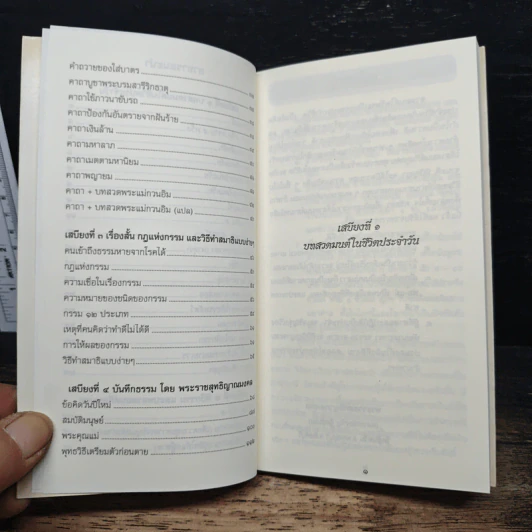 คำถวายของใส่บาตร
คาถาบูชาพระบรมสารีริกธาตุ
คาถาใช้ภาวนาขับรถ
คาถาป้องกันอันตรายจากฝันร้าย
คาถาเงินล้าน
คาถามหาลาภ
คาถาเมตตามหานิยม
คาถาพญายม
คาถา + บทสวดพระแม่กวนอิม
คาถา + บทสวดพระแม่กวนอิม (แปล)
เสบียงที่ ๓ เรื่องสั้น กฎแห่งกรรม และวิธีทำสมาธิแบบง่ายๆ
คนเข้าถึงธรรมหายจากโรคได้
กฎแห่งกรรม
ความเชื่อในเรื่องกรรม
ความหมายของชนิดของกรรม
กรรม ๑๒ ประเภท
เหตุที่คนคิดว่าทำดีไม่ได้ดี
การให้ผลของกรรม
วิธีทำสมาธิแบบง่ายๆ
เสบียงที่ ๔ บันทึกธรรม โดย พระราชสุทธิญาณมงคล
ข้อคิดวันปีใหม่
สมบัติมนุษย์
พระคุณแม่
พุทธวิธีเตรียมตัวก่อนตาย
เสบียงที่ ๑
บทสวดมนต์ในชีวิตประจำวัน